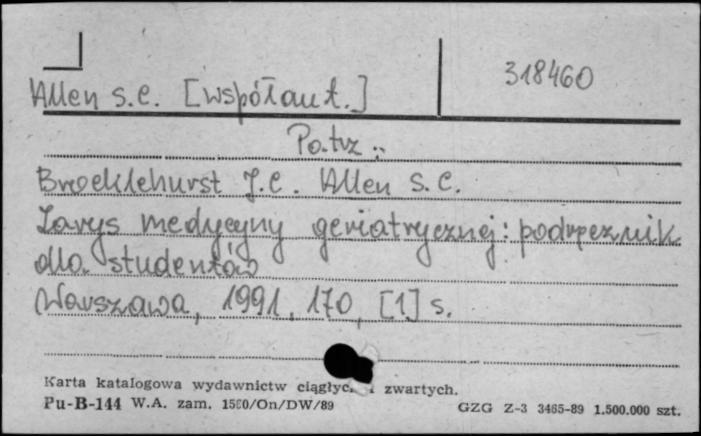 Allen S.C. [współaut.]
318460
Patrz:
Brocklehurst J.C. Allen S.C.
Zarys medycyny geriatrycznej: podręcznik
dla studentów
Warszawa, 1991, 170, [1] s.
Karta katalogowa wydawnictw ciągłych i zwartych.
Pu-B-144 W.A. zam. 1580/On/DW/89
GZG Z-3 3465-89 1.500.000 szt.